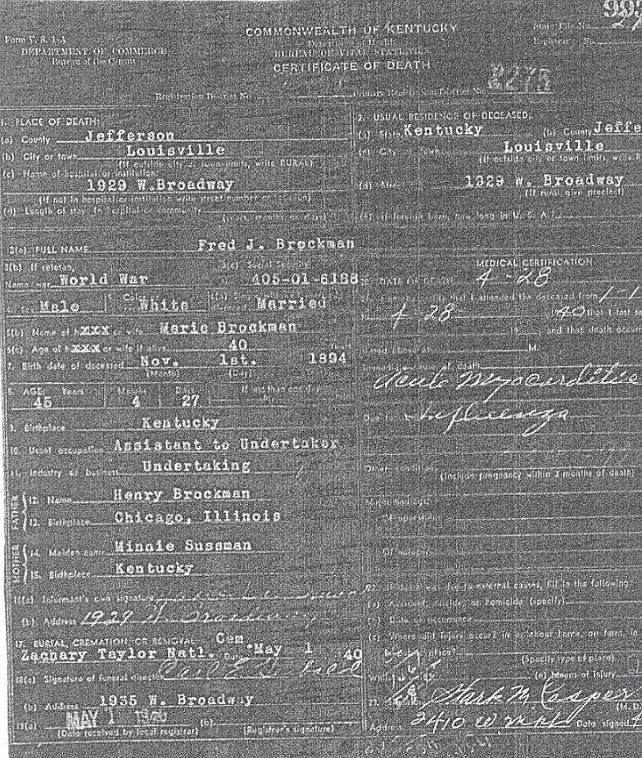 993
COMMONWEALTH OF KENTUCKY
Form V. S. 1-A
DEPARTMENT OF COMMERCE
Bureau of the Census
BUREAU OF VITAL STATISTICS
CERTIFICATE OF DEATH
State File No.
Registrar's No.
Registration District No.
Primary Registration District No. 2275
1. PLACE OF DEATH:
(a) County Jefferson
(b) City or town Louisville
(If outside city or town limits, write RURAL)
(c) Name of hospital or institution:
1929 W.Broadway
(If not in hospital or institution write street number or location)
(d) Length of stay: In hospital or community
(years, months, or days)
2. USUAL RESIDENCE OF DECEASED:
(a) State Kentucky (b) County Jeffe
(c) City or town Louisville
(If outside city or town limits, write
(d) Street 1929 W. Broadway
(If rural, give precinct)
(e) If foreign born, how long in U. S. A.?
3(a) FULL NAME Fred J. Brockman
3(b) If veteran, 3(c) Social Security
Name war World War 405-01-6188
Male White Married
6(b) Name of hXXX or wife Marie Brockman
6(c) Age of hXXX or wife if alive 40 years
7. Birth date of deceased Nov. 1st. 1894
(Month) (Day)
8. AGE: Years Months Days If less than one day
45 4 27
9. Birthplace Kentucky
10. Usual occupation Assistant to Undertaker
11. Industry or business Undertaking
FATHER
12. Name Henry Brockman
13. Birthplace Chicago, Illinois
MOTHER
14. Maiden name Minnie Sussman
15. Birthplace Kentucky
16(a) Informant's own signature
(b) Address 1929 W. Broadway
17. BURIAL, CREMATION, OR REMOVAL Cem
Zachary Taylor Natl. Date May 1 40
18(a) Signature of funeral director
(b) Address 1935 W. Broadway
19(a) MAY 1 1940 (b)
(Date received by local registrar) (Registrar's signature)
MEDICAL CERTIFICATION
20. DATE OF DEATH 4-28
21. I hereby certify that I attended the deceased from 1-1
4-28 1940 that I last s
and that death occur
stated above at M.
Immediate cause of death
Acute Myocarditis
Due to Influenza
Other conditions
(Include pregnancy within 3 months of death)
Major findings:
Of operations
Of autopsy
22. If death was due to external causes, fill in the following:
(a) Accident, suicide, or homicide (specify)
(b) Date of occurrence
(c) Where did injury occur? in or about home, on farm, in
place?
(Specify type of place)
While at (e) Means of injury
23. Signature Mark M. Casper
(M. D.
Address 2410 W Mkt Date signed